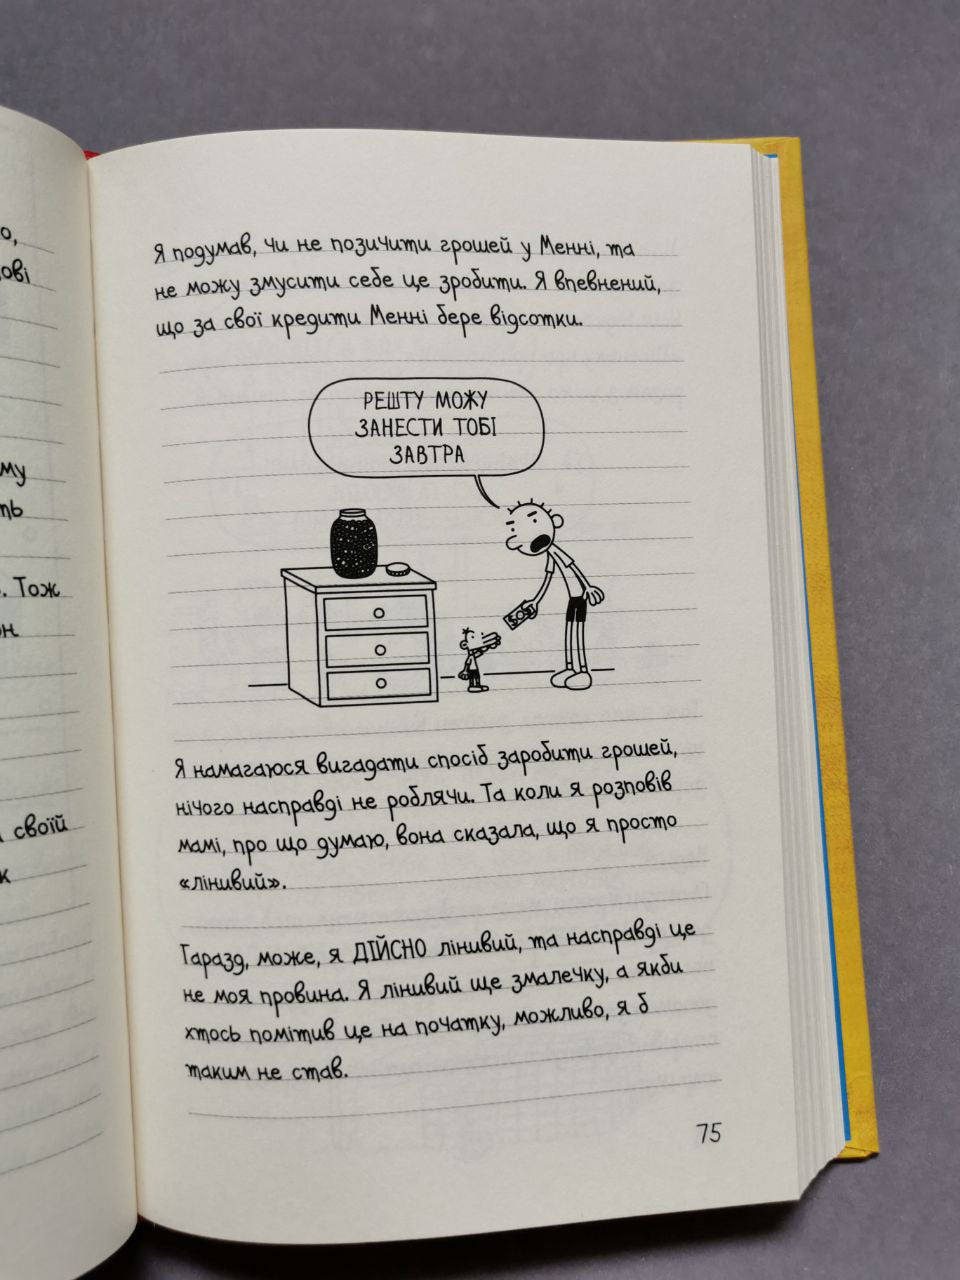 о,
ові
му
ть
. Тож
он
своїй
к
Я подумав, чи не позичити грошей у Менні, та
не можу змусити себе це зробити. Я впевнений,
що за свої кредити Менні бере відсотки.
РЕШТУ МОЖУ
ЗАНЕСТИ ТОБІ
ЗАВТРА
Я намагаюся вигадати спосіб заробити грошей,
нічого насправді не роблячи. Та коли я розповів
мамі, про що думаю, вона сказала, що я просто
«лінивий».
Гаразд, може, я ДІЙСНО лінивий, та насправді це
не моя провина. Я лінивий ще змалечку, а якби
хтось помітив це на початку, можливо, я б
таким не став.
75